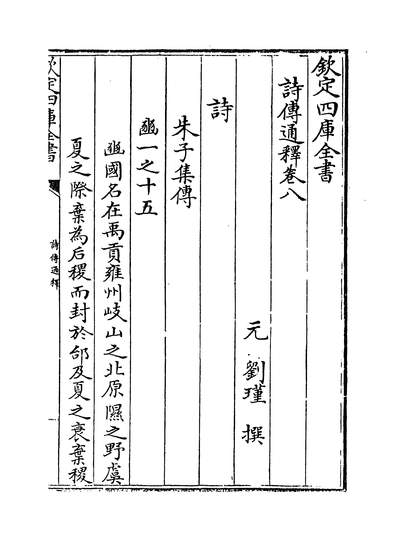 欽定四庫全書
詩傳通釋卷八
元 劉瑾 撰
詩
朱子集傳
豳一之十五
豳國名在禹貢雍州岐山之北原隰之野虞
夏之際棄為后稷而封於邰及夏之衰棄稷
欽定四庫全書
詩傳通釋